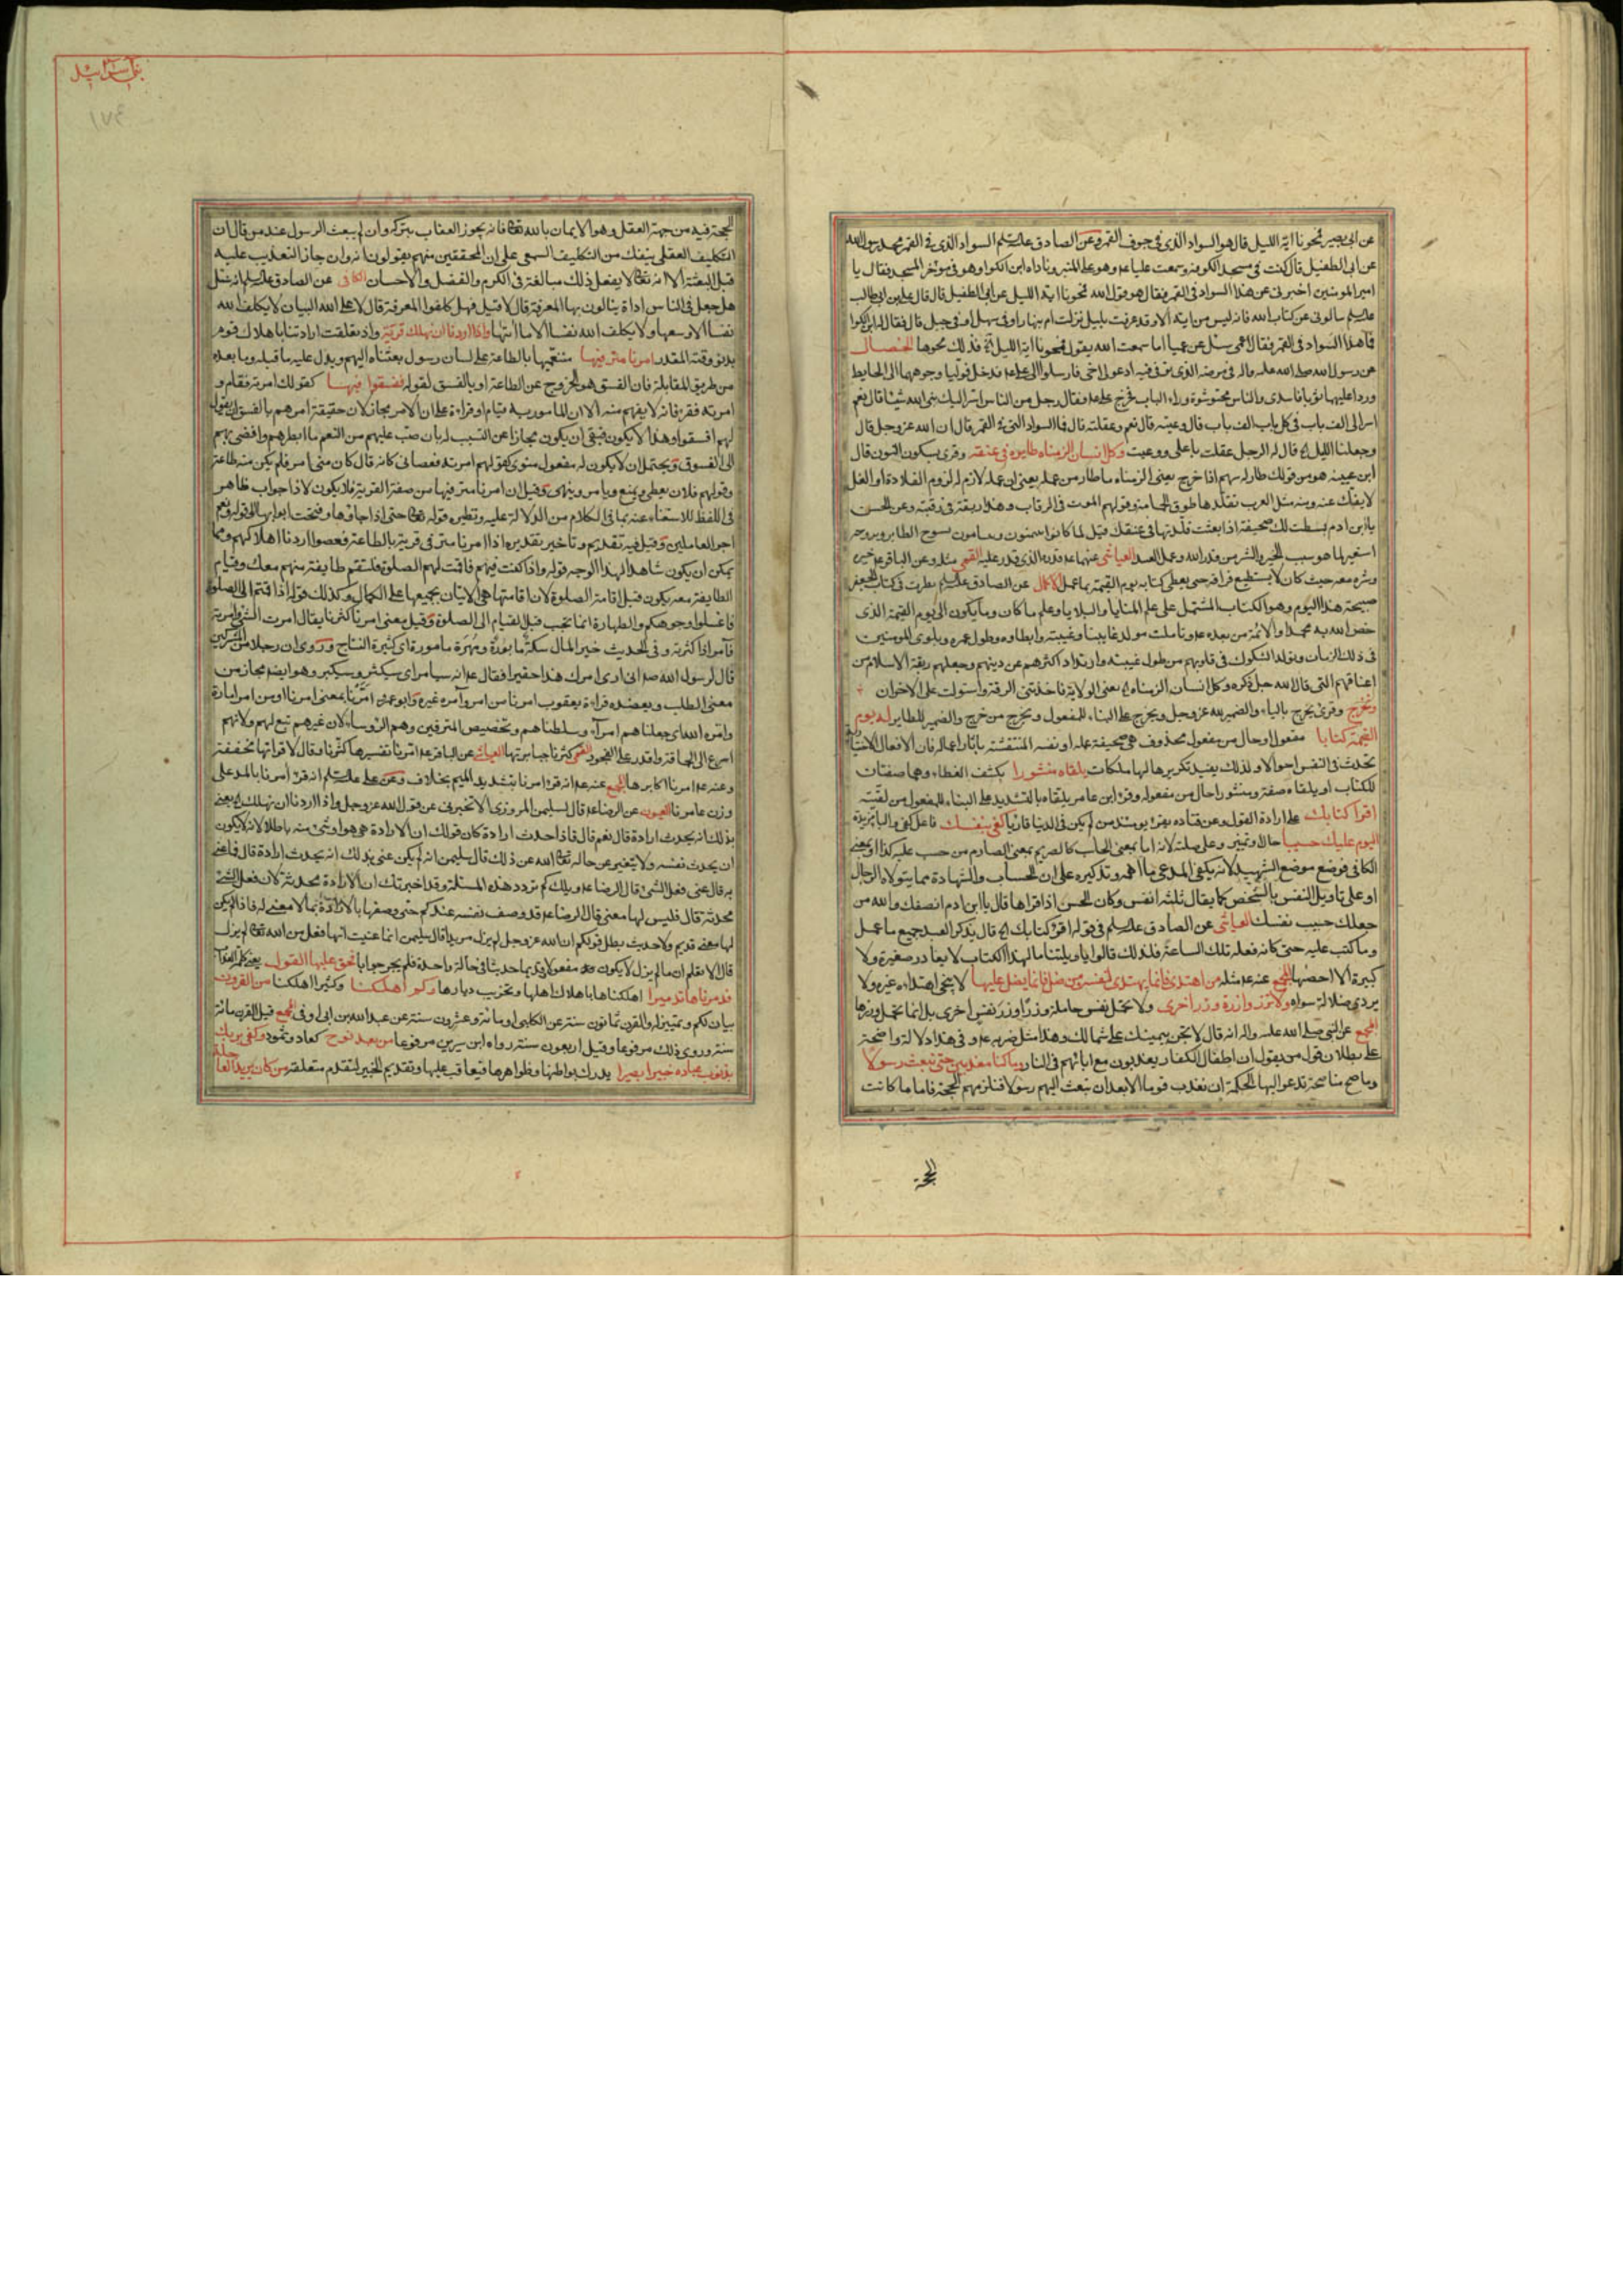 عن ابى بصير فمحونا اية الليل قال هو السواد الذى فى جوف القمر وعن الصادق عليه السلم السواد الذى فى القمر محمد رسول الله
عن ابى الطفيل قال كنت فى مسجد الكوفة وسمعت عليا وهو على المنبر وناداه ابن الكوا وهو فى مؤخر المسجد فقال يا
امير المؤمنين اخبرنى عن هذا السواد فى القمر فقال هو قول الله فمحونا اية الليل عن ابى الطفيل قال قال على بن ابى طالب
سلونى عن كتاب الله فانه ليس من اية الا وقد عرفت بليل نزلت ام بنهار او فى سهل او فى جبل قال فقال له ابن الكوا
فما هذا السواد فى القمر فقال اعمى سئل عن عميا اما سمعت الله يقول فمحونا اية الليل فذلك محوها الخصال
الف باب فى كل باب الف باب قال وعيته قال نعم وعقلته قال فما السواد الذى فى القمر قال ان الله عز وجل قال
وجعلنا الليل قال له الرجل عقلت يا على ووعيت وكل انسان الزمناه طايره فى عنقه وقرئ بسكون النون قال
ابن عيينه هو من قولك طار له سهم اذا خرج يعنى الزمناه ما طار من عمله يعنى ان عمله لازم له لزوم القلادة او الغل
لا يفك عنه ومنه مثل العرب تقلدها طوق الحمامة وقولهم الموت فى الرقاب وهذا ربقة فى رقبته وعن الحسن
يا ابن ادم بسطت لك صحيفة اذا بعثت قلدتها فى عنقك
استعير لما هو سبب الخير والشر من قدر الله وعمل العبد العياشى عنهما قدره الذى قدر عليه القمى مثله وعن الباقر خيره
وشره معه حيث كان لا يستطيع فراقه حتى يعطى كتابه يوم القيمة بما عمل الاكمال عن الصادق نظرت فى كتاب الجفر
صبيحة هذا اليوم وهو الكتاب المشتمل على علم المنايا والبلايا وعلم ما كان وما يكون الى يوم القيمة الذى
خص الله به محمدا والائمة من بعده وتاملت مولد غايبنا وغيبته وابطاوه وطول عمره وبلوى المومنين
فى ذلك الزمان وتولد الشكوك فى قلوبهم من طول غيبته وارتداد اكثرهم عن دينهم وخلعهم ربقة الاسلام من
اعناقهم التى قال الله جل ذكره وكل انسان الزمناه يعنى الولاية فاخذتنى الرقة واستولت على الاحزان
ونخرج وقرئ يخرج بالياء والضمير لله عز وجل ويخرج على البناء للمفعول ويخرج من خرج والضمير للطاير له يوم
القيمة كتابا مفعول او حال من مفعول محذوف هى صحيفة عمله او نفسه المنتقشة باثار اعماله فان الافعال الاختيارية
تحدث فى النفس احوالا ولذلك يفيد تكريرها لها ملكات يلقاه منشورا بكشف الغطاء وهما صفتان
للكتاب او يلقاه صفة ومنشورا حال من مفعوله وقرء ابن عامر يلقاه بالتشديد على البناء للمفعول من لقيته
اقرا كتابك على ارادة القول وعن قتاده يقرا يومئذ من لم يكن فى الدنيا قاريا كفى بنفسك فاعل كفى والباء مزيدة
اليوم عليك حسيبا حال او تمييز وعلى صلته لانه اما بمعنى الحاسب كالصريم بمعنى الصارم من حسب عليه كذا او بمعنى
الكافى فوضع موضع الشهيد لانه يكفى المدعى ما اهمه وتذكيره على ان الحساب والشهادة مما يتولاه الرجال
او على تاويل النفس بالشخص كما يقال ثلثة انفس وكان الحسن اذا قراها قال يا ابن ادم انصفك والله من
جعلك حسيب نفسك العياشى عن الصادق عليه السلم فى قوله اقرا كتابك قال يذكر العبد جميع ما عمل
وما كتب عليه حتى كانه فعله تلك الساعة فلذلك قالوا يا ويلتنا ما لهذا الكتاب لا يغادر صغيرة ولا
كبيرة الا احصيها المجمع عنه مثله من اهتدى فانما يهتدى لنفسه ومن ضل فانما يضل عليها لا ينجى اهتداءه غيره ولا
يردى ضلالة سواه ولا تزر وازرة وزر اخرى ولا تحمل نفس حاملة وزرا وزر نفس اخرى بل انما تحمل وزرها
المجمع عن النبى صلى الله عليه واله انه قال لا تجن يمينك على شمالك وهذا مثل ضربه وفى هذا دلالة واضحة
على بطلان قول من يقول ان اطفال الكفار يعذبون مع ابائهم فى النار وما كنا معذبين حتى نبعث رسولا
وما صح منا صحة تدعو اليها الحكمة ان نعذب قوما الا بعد ان نبعث اليهم رسولا فنلزمهم الحجة فاما ما كانت
الحجة
بنى اسرائيل
١٧٤
الحجة فيه من جهة العقل وهو الايمان بالله فانه يجوز العقاب بتركه وان لم يبعث الرسول عند من قال ان
التكليف العقلى ينفك من التكليف السمعى على ان المحققين منهم يقولون انه وان جاز التعذيب عليه
قبل البعثة الا انه لا يفعل ذلك مبالغة فى الكرم والفضل والاحسان الكافى عن الصادق عليه السلم انه سئل
هل جعل فى الناس اداة ينالون بها المعرفة قال لا قيل فهل كلفوا المعرفة قال لا على الله البيان لا يكلف الله
نفسا الا وسعها ولا يكلف الله نفسا الا ما اتيها واذا اردنا ان نهلك قرية واذ تعلقت ارادتنا باهلاك قوم
بدنو وقته المقدر امرنا مترفيها متنعميها بالطاعة على لسان رسول بعثناه اليهم ويدل عليه ما قبله وما بعده
من طريق المقابلة فان الفسق هو الخروج عن الطاعة او بالفسق لقوله ففسقوا فيها كقولك امرته فقام و
امرته فقرا فانه لا يفهم منه الا ان المامور به قيام او قراءة على ان الامر مجاز لان حقيقة امرهم بالفسق ان يقول
لهم افسقوا وهذا لا يكون فبقى ان يكون مجازا عن التسبب له بان صب عليهم من النعم ما ابطرهم وافضى بهم
الى الفسوق ويحتمل ان لا يكون له مفعول منوى كقولهم امرته فعصانى كانه قال كان منى امر فلم يكن منه طاعة
وقولهم فلان يعطى ويمنع ويامر وينهى وقيل ان امرنا مترفيها من صفة القرية فلا يكون لاذا جواب ظاهر
فى اللفظ للاستغناء عنه بما فى الكلام من الدلالة عليه ونظيره قوله حتى اذا جاؤها وفتحت ابوابها الى قوله فنعم
اجر العاملين وقيل فيه تقديم وتاخير تقديره اذا امرنا مترفى قرية بالطاعة فعصوا اردنا اهلاكهم ومما
يمكن ان يكون شاهدا لهذا الوجه قوله واذا كنت فيهم فاقمت لهم الصلوة فلتقم طايفة منهم معك وقيام
الطايفة معه يكون قبل اقامة الصلوة لان اقامتها هى الاتيان بجميعها على الكمال وكذلك قوله اذا قمتم الى الصلوة
فاغسلوا وجوهكم والطهارة انما تجب قبل القيام الى الصلوة وقيل معنى امرنا كثرنا يقال امرت الشئ وامرته
فامر اذا كثرته وفى الحديث خير المال سكة مابورة ومهرة مامورة اى كثيرة النتاج وروى ان رجلا من المشركين
قال لرسول الله انى ارى امرك هذا حقيرا فقال انه سيامر اى سيكثر وسيكبر وهو ايضا مجاز من
معنى الطلب ويعضده قراءة يعقوب امرنا من امر وآمره غيره وابو عمرو امرنا بمعنى امرنا او من امر امارة
وامره الله اى جعلناهم امراء وسلطناهم وتخصيص المترفين وهم الرؤساء لان غيرهم تبع لهم ولانهم
اسرع الى الحماقة واقدر على الفجور القمى كثرنا جبابرتها العياشى عن الباقر امرنا تفسيرها كثرنا وقال لا قراتها مخففة
وعنه امرنا اكابرها المجمع عنه انه قرء امرنا بتشديد الميم بخلاف وعن على عليه السلم انه قرء آمرنا بالمد على
وزن عامرنا العيون عن الرضا قال لسليمن المروزى الا تخبرنى عن قول الله عز وجل واذا اردنا ان نهلك يعنى
بذلك انه يحدث ارادة قال نعم قال فاذا احدث ارادة كان قولك ان الارادة هى هو او شئ منه باطلا لانه لا يكون
ان يحدث نفسه ولا يتغير عن حاله الله عن ذلك قال سليمن انه لم يكن عنى بذلك انه يحدث ارادة قال فما عنى
به قال عنى فعل الشئ قال الرضا ويلك كم تردد هذه المسئلة وقد اخبرتك ان الارادة محدثة لان فعل الشئ
محدث قال فليس لها معنى قال الرضا قد وصف نفسه عندكم حتى وصفها بالارادة بما لا معنى له فاذا لم يكن
لها معنى قديم ولا حديث بطل قولكم ان الله عز وجل لم يزل مريدا قال سليمن انما عنيت انها فعل من الله لم يزل
قال الا تعلم ان ما لم يزل لا يكون مفعولا وقديما حديثا فى حالة واحدة فلم يحر جوابا فحق عليها القول يعنى كلمة العذاب
فدمرناها تدميرا اهلكناها باهلاك اهلها وتخريب ديارها وكم اهلكنا وكثيرا اهلكنا من القرون
بيان لكم وتمييز له والقرن ثمانون سنة عن الكلبى او مائة وعشرون سنة عن عبد الله بن ابى اوفى المجمع قيل القرن مائة
سنة وروى ذلك مرفوعا وقيل اربعون سنة رواه ابن سيرين مرفوعا من بعد نوح كعاد وثمود وكفى بربك
بذنوب عباده خبيرا بصيرا يدرك بواطنها وظواهرها فيعاقب عليها وتقديم الخبير لتقدم متعلقه من كان يريد العاجلة